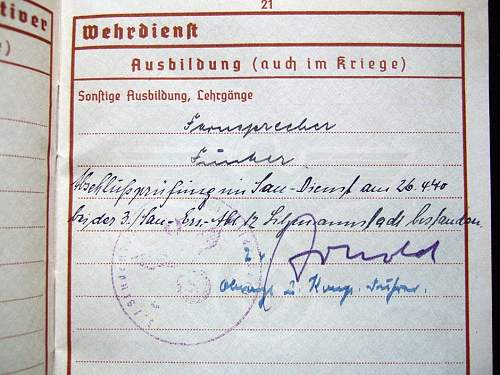 21
tiver
Wehrdienst
Ausbildung (auch im Kriege)
Sonstige Ausbildung, Lehrgänge
Fernsprecher
Funker
Abschlußprüfung im San-Dienst am 26.4.40
bei der 3./San.-Ers.-Abt. 12 Litzmannstadt bestanden.